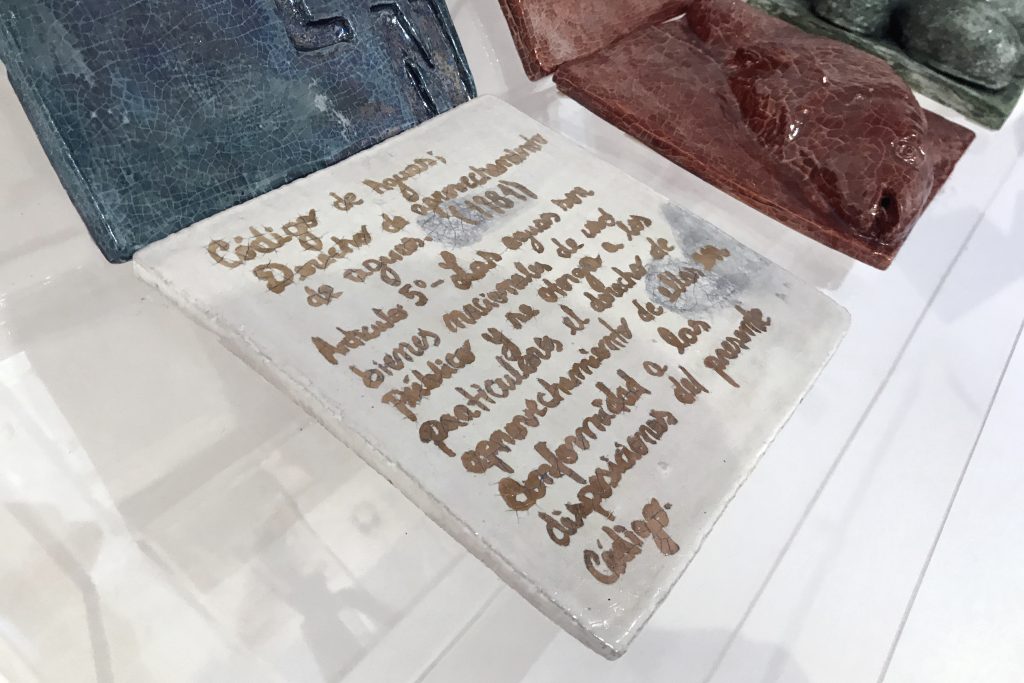 Código de Aguas;
Derecho de aprovechamiento
de aguas (1981)
Artículo 5°- Las aguas son
bienes nacionales de uso
público y se otorga a los
particulares el derecho de
aprovechamiento de ellas en
conformidad a las
disposiciones del presente
Código.